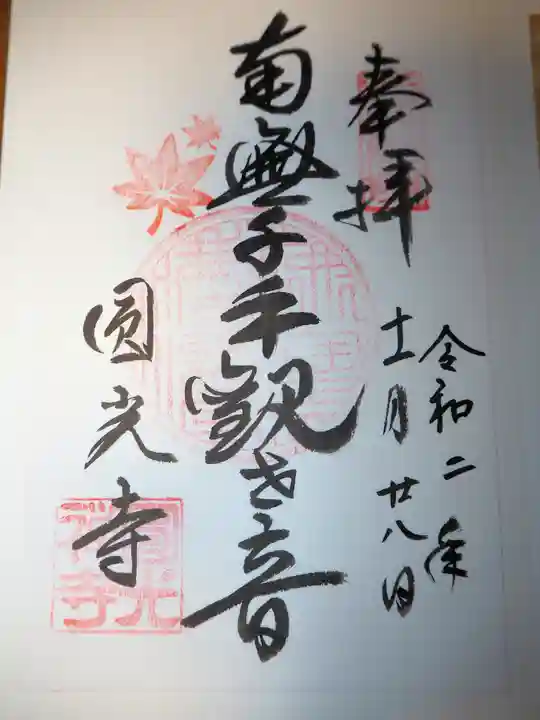 奉拝
令和二年
十一月廿八日
南無千手観世音
圓光寺